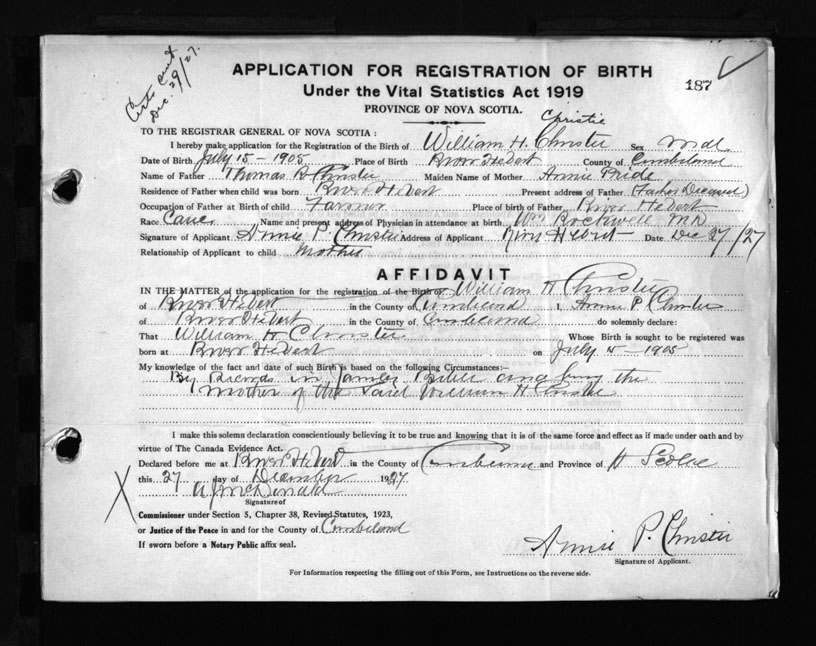 Certs sent
Dec. 29/27.
APPLICATION FOR REGISTRATION OF BIRTH
Under the Vital Statistics Act 1919
187
PROVINCE OF NOVA SCOTIA.
Christie
TO THE REGISTRAR GENERAL OF NOVA SCOTIA:
I hereby make application for the Registration of the Birth of William H. Christie Sex Male
Date of Birth July 15 - 1905 Place of Birth River Hebert County of Cumberland
Name of Father Thomas B Christie Maiden Name of Mother Annie Pride
Residence of Father when child was born River Hebert Present address of Father (Father Deceased)
Occupation of Father at Birth of child Farmer Place of birth of Father River Hebert
Race Cauc. Name and present address of Physician in attendance at birth Wm Rockwell M.D.
Signature of Applicant Annie P. Christie Address of Applicant River Hebert Date Dec 27/27
Relationship of Applicant to child Mother
AFFIDAVIT
IN THE MATTER of the application for the registration of the Birth of William H Christie
of River Hebert in the County of Cumberland I, Annie P Christie
of River Hebert in the County of Cumberland do solemnly declare:
That William H Christie Whose Birth is sought to be registered was
born at River Hebert on July 15 - 1905
My knowledge of the fact and date of such Birth is based on the following Circumstances:—
By Records in Family Bible and being the
Mother of the said William H Christie
I make this solemn declaration conscientiously believing it to be true and knowing that it is of the same force and effect as if made under oath and by
virtue of The Canada Evidence Act.
Declared before me at River Hebert in the County of Cumberland and Province of N Scotia
this 27 day of December 1927
McDonald
Signature of
Commissioner under Section 5, Chapter 38, Revised Statutes, 1923,
or Justice of the Peace in and for the County of Cumberland
If sworn before a Notary Public affix seal.
Annie P. Christie
Signature of Applicant.
For Information respecting the filling out of this Form, see Instructions on the reverse side.